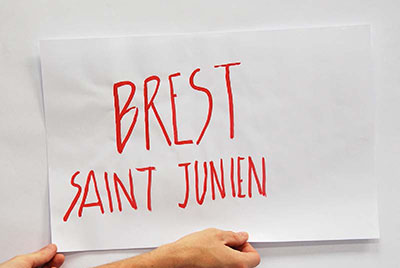 BREST
SAINT JUNIEN